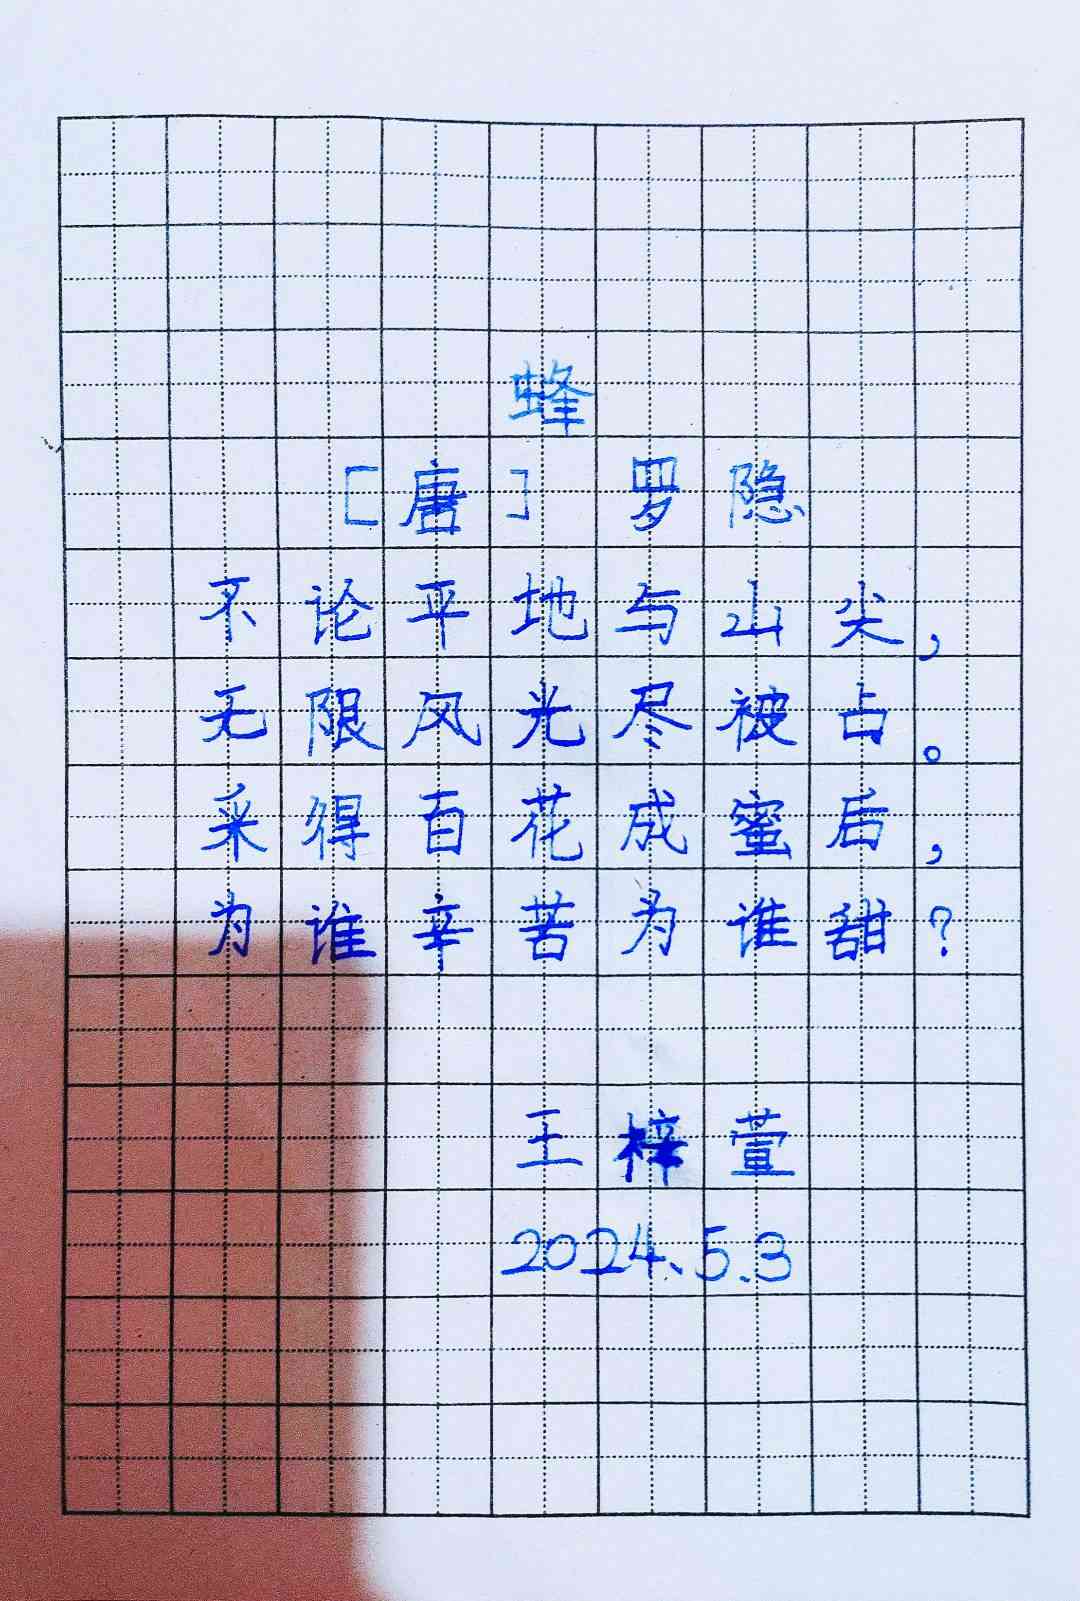 蜂
[唐] 罗隐
不论平地与山尖，
无限风光尽被占。
采得百花成蜜后，
为谁辛苦为谁甜？
王梓萱
2024.5.3